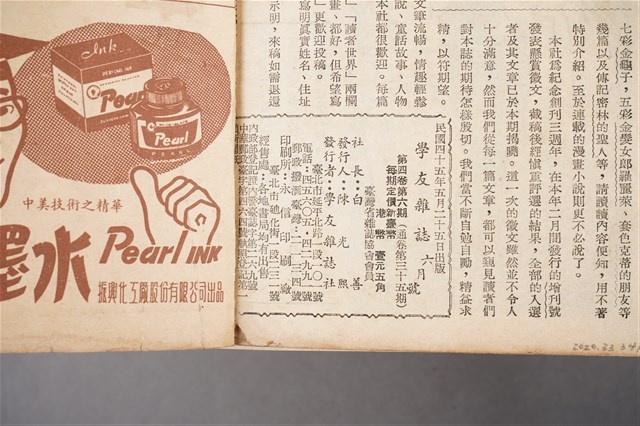 七彩金龜子，五彩金髮女郎羅麗萊、套色克蒂的朋友等
幾篇以及傳記密林的聖人等，請讀讀內容便知，用不著
特別介紹。至於連載的漫畫小說則更不必說了。
本社爲紀念創刊三週年，在本年二月開發行的增刊號
發表懸賞徵文，截稿後經慎重評選的結果，全部的入選
者及其文章已於本期揭曉。這一次的徵文雖然並不令人
十分滿意，然而我們從每一篇文章，都可以窺見讀者們
對本誌的期待怎樣殷切。我們當不斷自勉自勵，精益求
精，以符期望。
文筆流暢，情趣輕鬆
說、童話故事、人物
本社都很歡迎。每篇
「讀者世界」兩欄
畫、都好，但希望寫
」更歡迎投稿。
寫明眞實姓名、住址
示明，來稿如需退還
民國四十五年五月二十五日出版
學友雜誌 六月號
第四卷第六期（通卷第三十五期）
每期定價新臺幣
港幣 壹元五角
臺灣省雜誌協會會員
社長：白善
發行人：陳光熙
發行者：學友雜誌社
臺北市延平北路一段一〇一號
電話：四六一四二九九二一號
郵政撥滙臺灣一二三四號
印刷所：永信印刷廠
臺北市迪化街一段三二一號
經售處：各地書局均有出售
Ink
Pearl
Pearl
PEARL
中美技術之精華
墨水
Pearl INK
振興化工廠股份有限公司出品